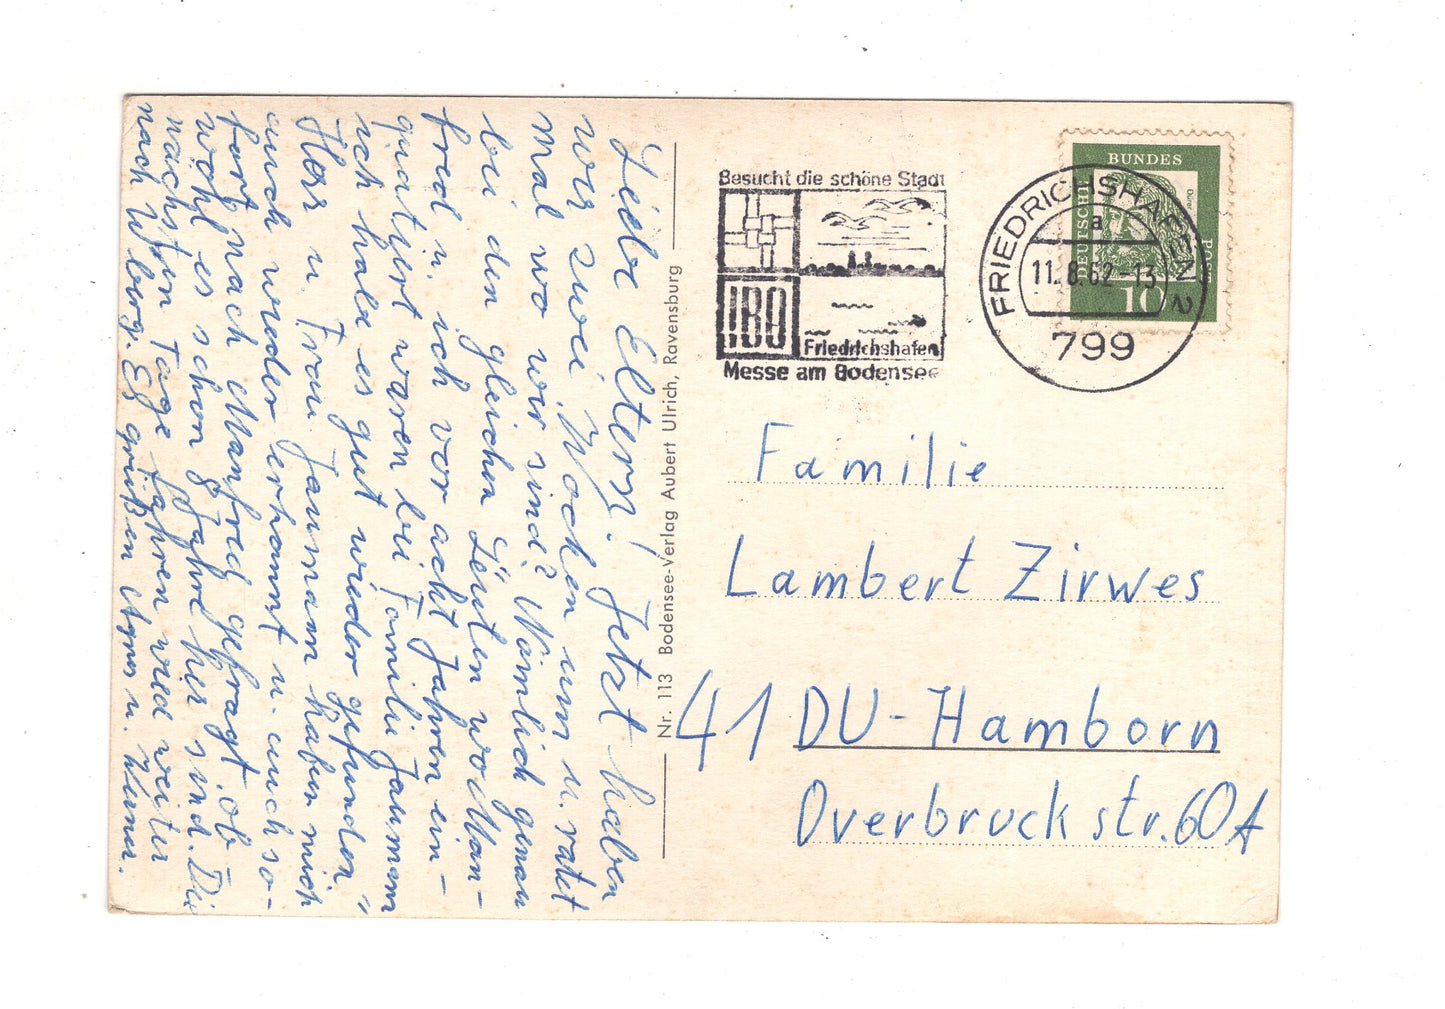 Liebe Eltern! Jetzt haben
wir zwei Wochen um u. ratet
mal wo wir sind? Nämlich genau
bei den gleichen Leuten wo Man-
fred u. ich vor acht Jahren ein-
quatiert waren bei Familie Jaumann
ich habe es gut wieder gefunden"
Herr u. Frau Jaumann haben mich
auch wieder erkannt u. auch so-
fort nach Manfred gefragt, ob
wohl es schon 8 Jahre her sind. Die
nächsten Tage fahren wied weiter
nach Wberg. Es grüßen Agnes u.
Nr. 113 Bodensee-Verlag Aubert Ulrich, Ravensburg
Besucht die schöne Stadt
IBO
Friedrichshafen
Messe am Bodensee
FRIEDRICHSHAFEN 2
a
11.8.62-13
799
DEUTSCHE BUNDESPOST
Dürer
10
Familie
Lambert Zirwes
41 DU-Hamborn
Overbruckstr. 60A